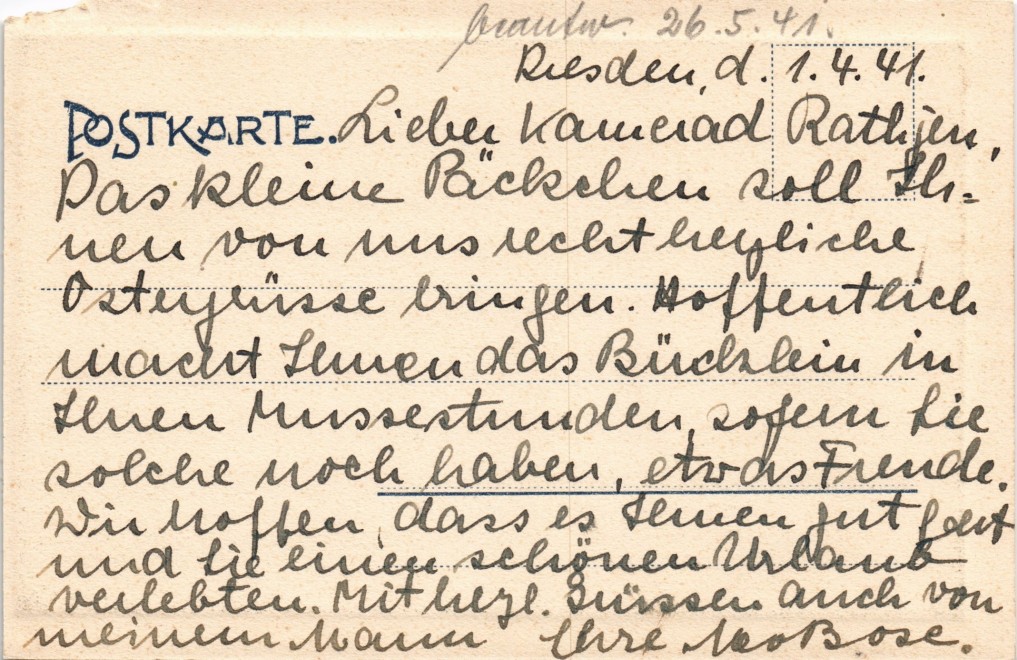 beantw. 26.5.41.
Dresden, d. 1.4.41.
POSTKARTE. Lieber Kamerad Rathjen,
Das kleine Päckchen soll Ih-
nen von uns recht herzliche
Ostergrüsse bringen. Hoffentlich
macht Ihnen das Büchlein in
Ihren Mussestunden, sofern Sie
solche noch haben, etwas Freude.
Wir hoffen, dass es Ihnen gut geht
und Sie einen schönen Urlaub
verlebten. Mit herzl. Grüssen auch von
meinem Mann Ihre Bose.